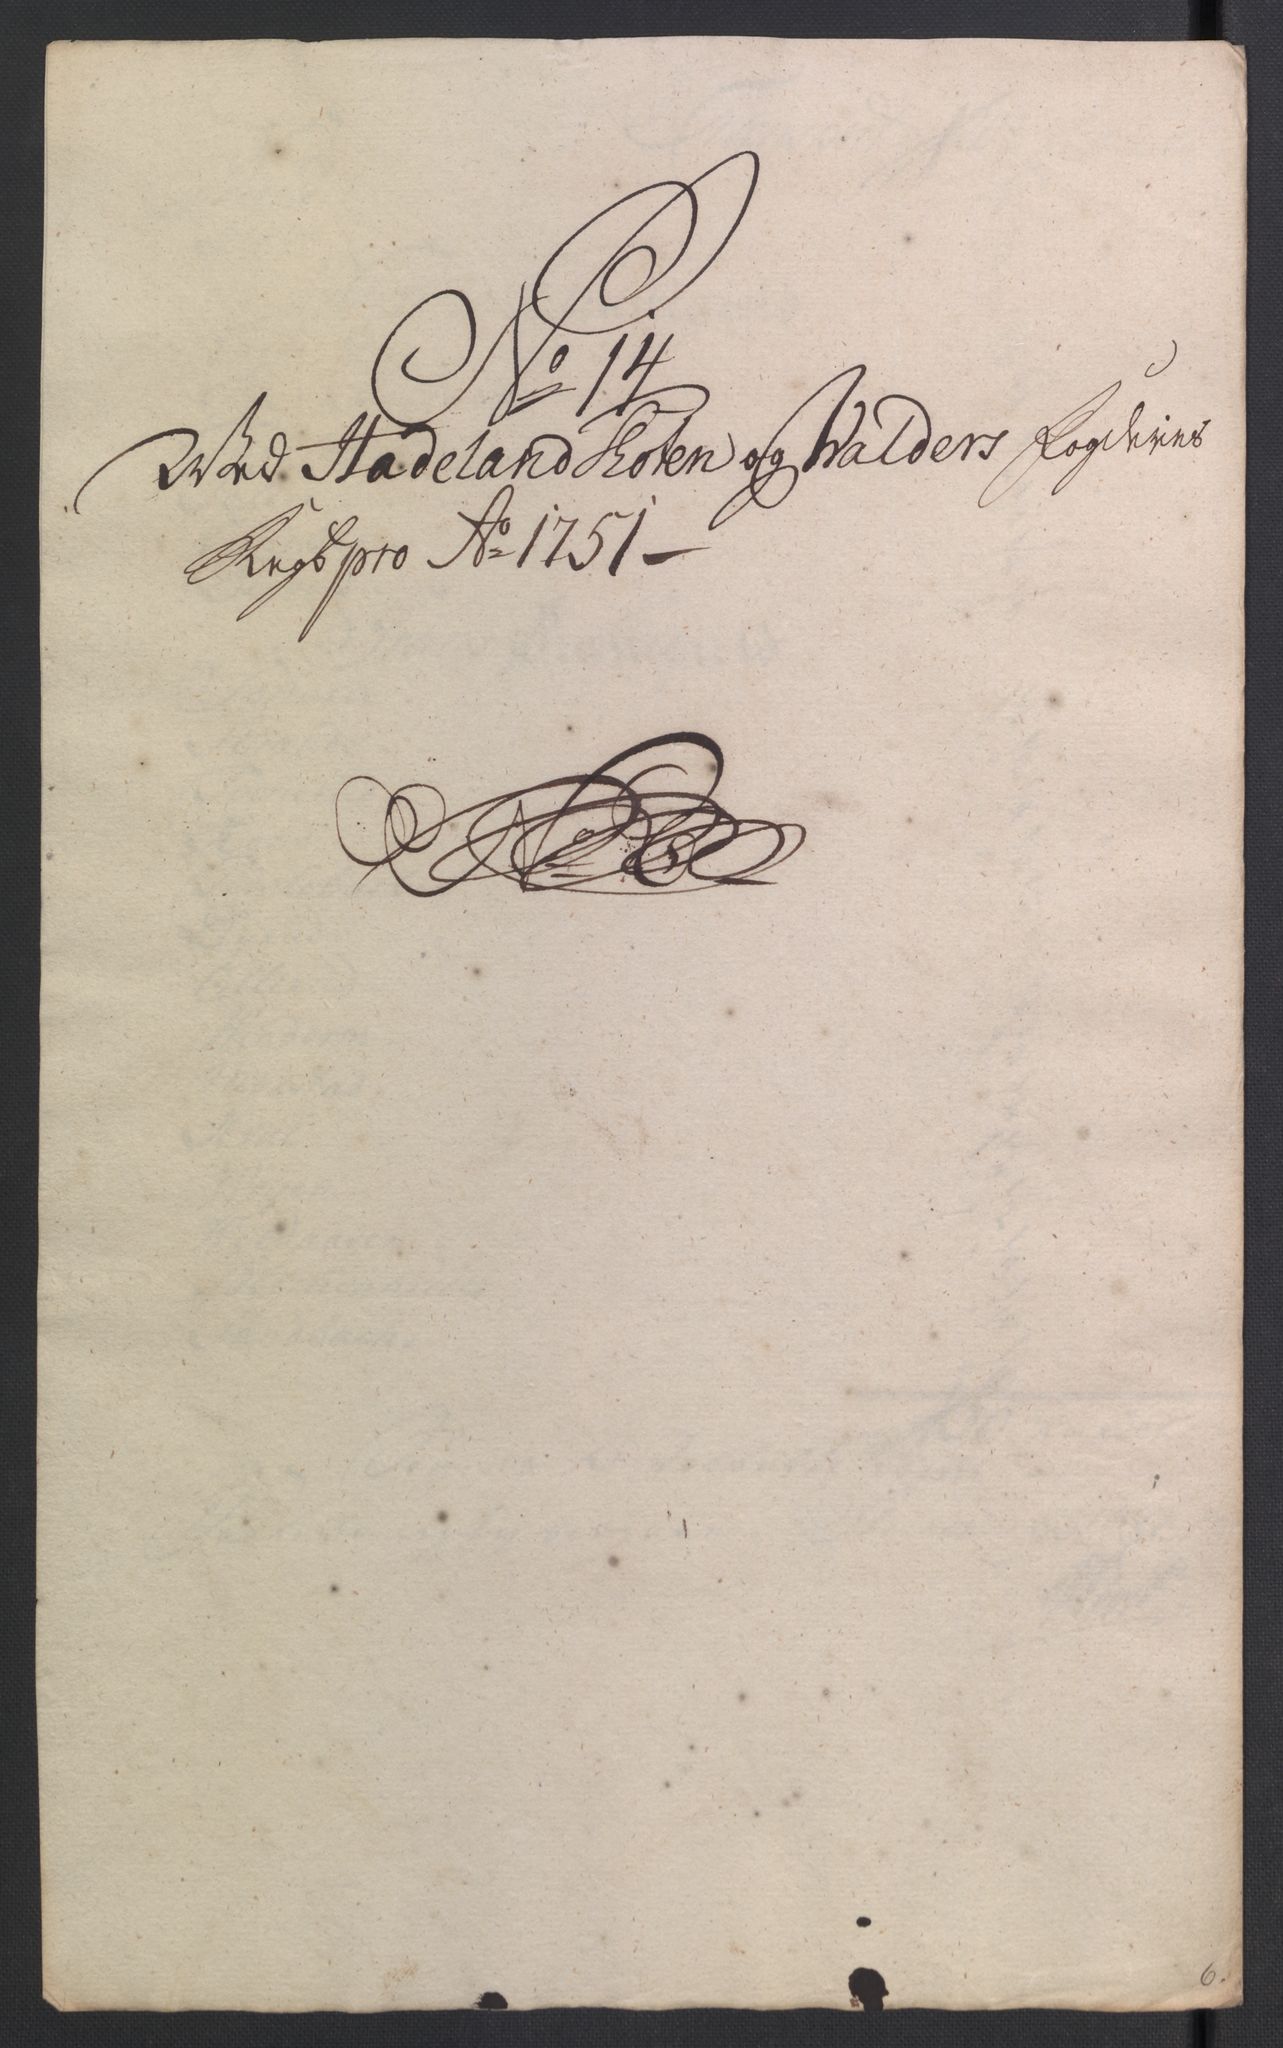 No 14
Ved Hadeland Toten og Walders Fogderies
Regsk pro Ao 1751
No
6.